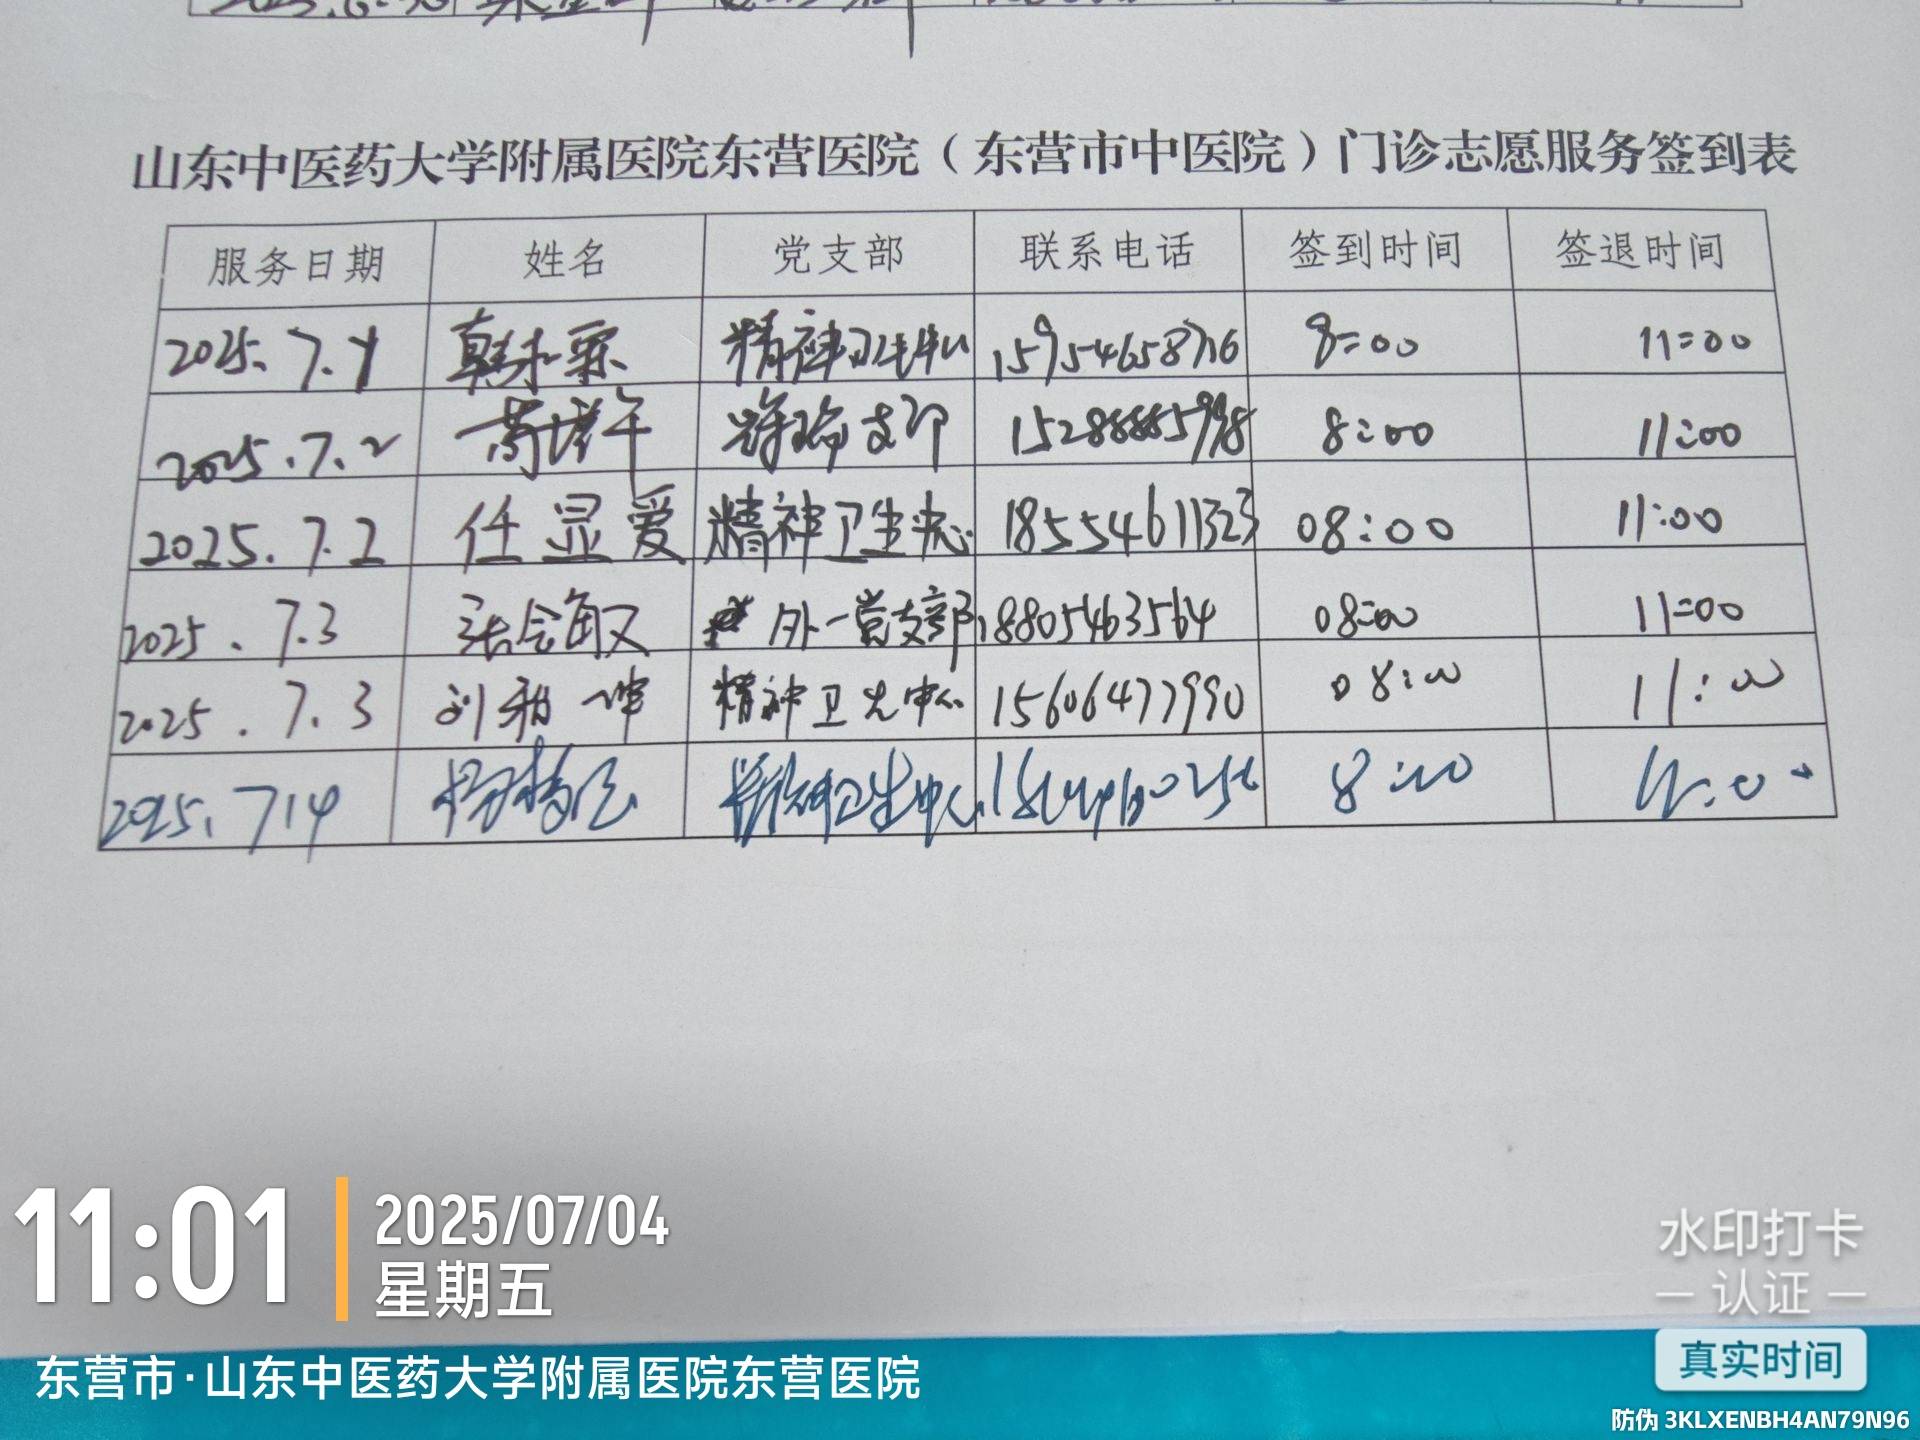 山东中医药大学附属医院东营医院（东营市中医院）门诊志愿服务签到表
服务日期 姓名 党支部 联系电话 签到时间 签退时间
2025.7.1 精神卫生中心 15954658716 8:00 11:00
2025.7.2 支部 8:00 11:00
2025.7.2 任显爱 精神卫生中心 18554611323 08:00 11:00
2025.7.3 外一党支部 18805463564 08:00 11:00
2025.7.3 精神卫生中心 15606477990 08:00 11:00
2025.7.4 卫生中心 8:00
11:01
2025/07/04
星期五
东营市·山东中医药大学附属医院东营医院
水印打卡
认证
真实时间
防伪 3KLXENBH4AN79N96